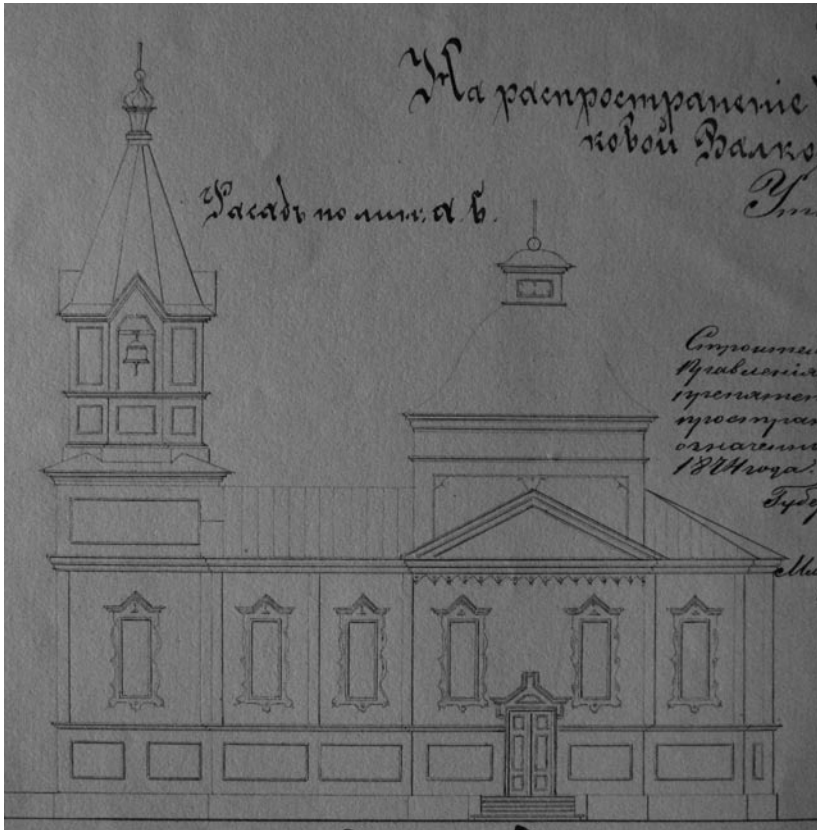 На распространеніе
ковой Валко
Ут
Фасадъ по лин: а. б.
Строител
Правленія
препятст
простран
означенны
1874 года.
Губер